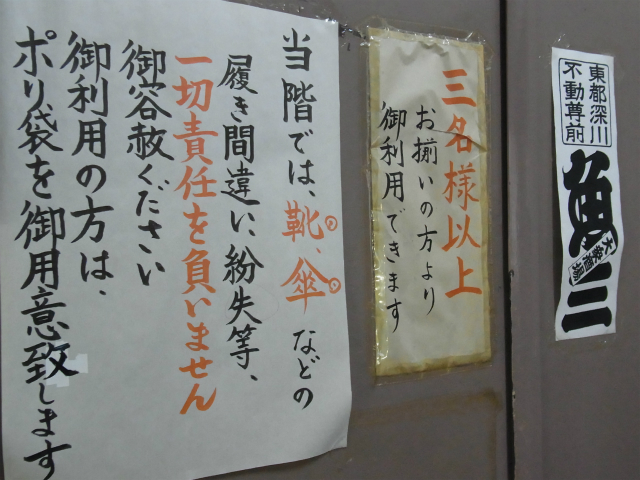 当階では、靴、傘などの
履き間違い、紛失等、
一切責任を負いません
御容赦ください
御利用の方は、
ポリ袋を御用意致します
三名様以上
お揃いの方より
御利用できます
東都深川
不動尊前
魚三
大衆酒場